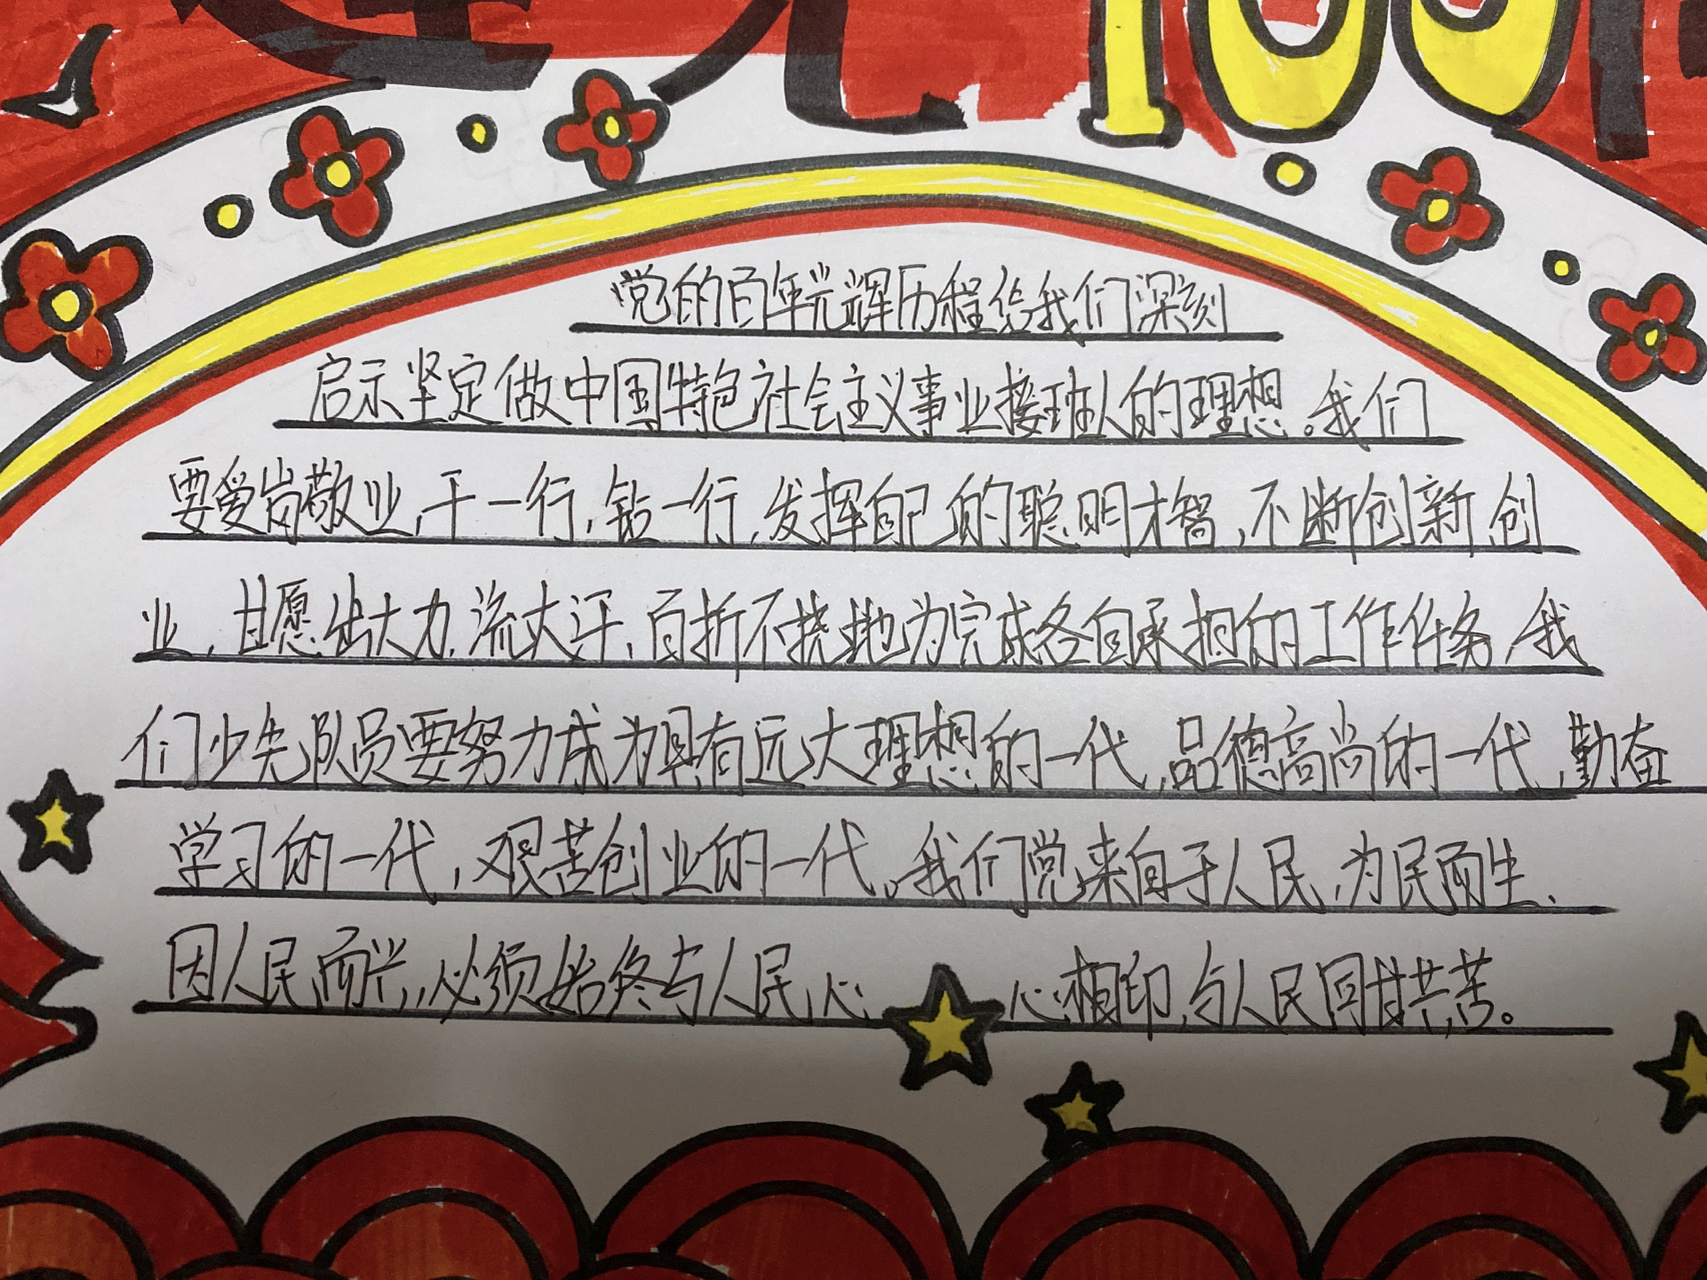 建党100周
党的百年光辉历程给我们深刻
启示坚定做中国特色社会主义事业接班人的理想。我们
要爱岗敬业,干一行,钻一行,发挥自己的聪明才智,不断创新,创
业,甘愿出大力,流大汗,百折不挠地为完成各自承担的工作任务,我
们少先队员要努力成为具有远大理想的一代,品德高尚的一代,勤奋
学习的一代,艰苦创业的一代。我们党来自于人民,为民而生、
因人民而兴,必须始终与人民心 心相印,与人民同甘共苦。